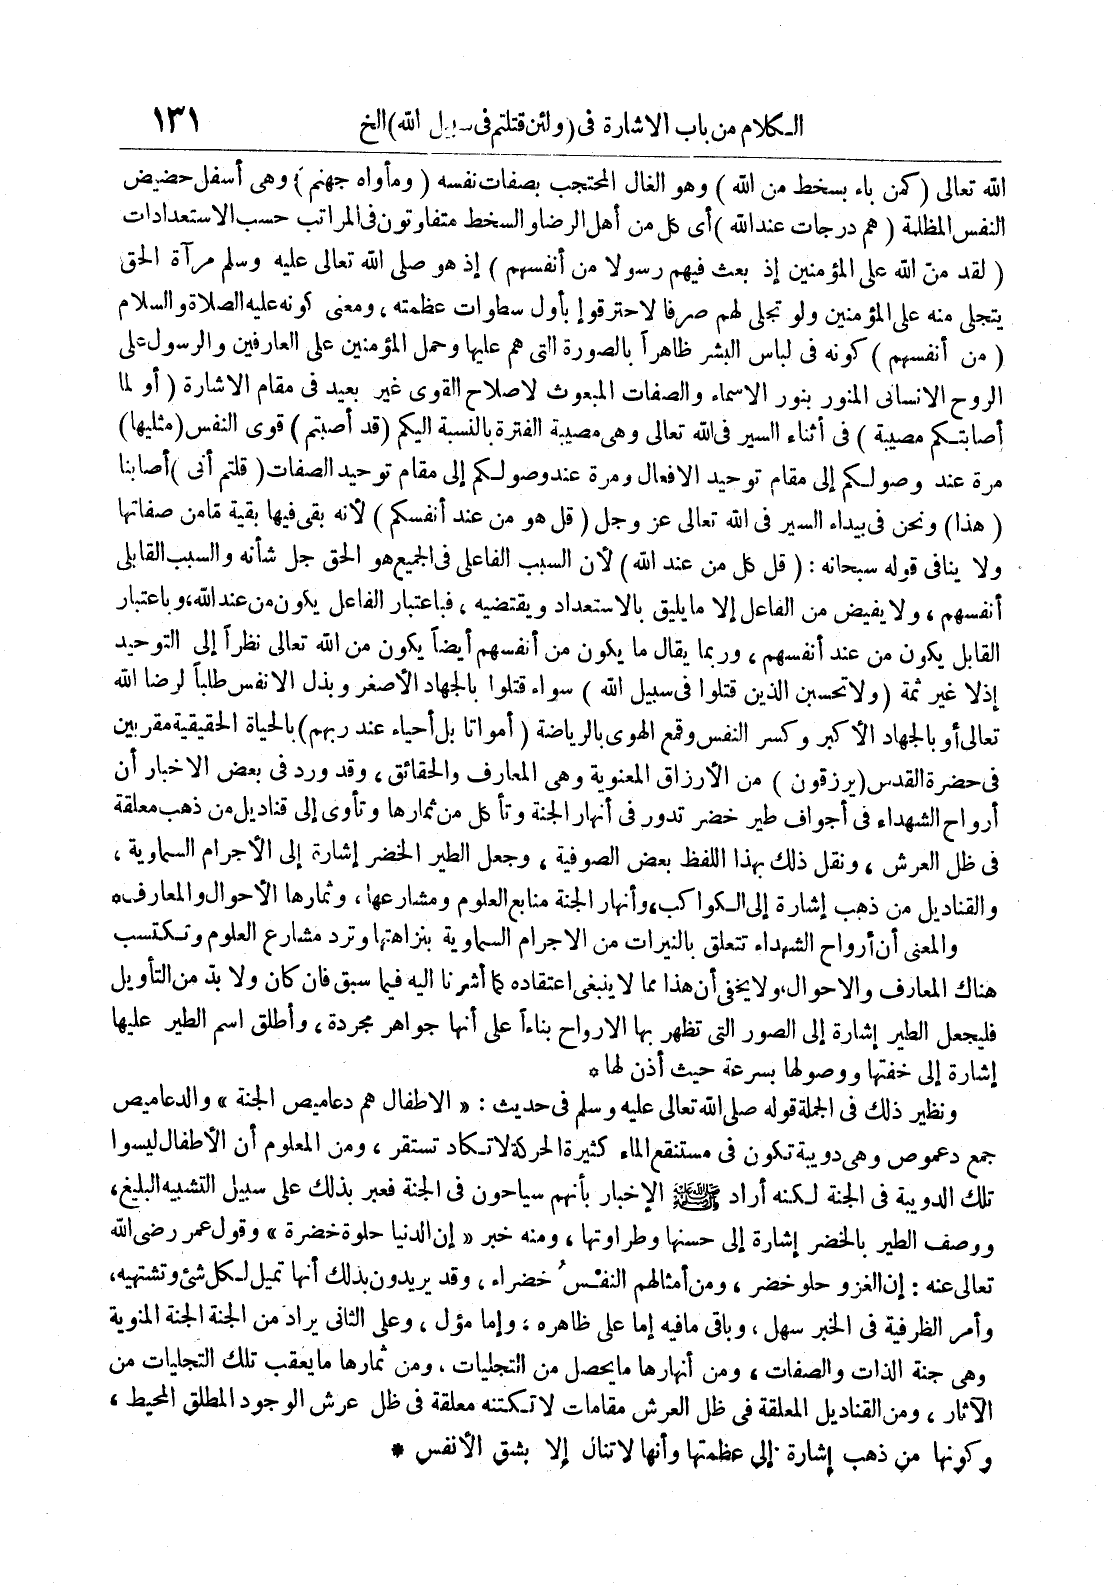 الكلام من باب الاشارة فى (ولئن قتلتم فى سبيل الله) الخ ١٣١
الله تعالى (كمن باء بسخط من الله) وهو الغال المحتجب بصفات نفسه (ومأواه جهنم) وهى أسفل حضيض
النفس المظلمة (هم درجات عند الله) أى كل من أهل الرضا والسخط متفاوتون فى المراتب حسب الاستعدادات
(لقد منّ الله على المؤمنين إذ بعث فيهم رسولا من أنفسهم) إذ هو صلى الله تعالى عليه وسلم مرآة الحق
يتجلى منه على المؤمنين ولو تجلى لهم صرفا لاحترقوا بأول سطوات عظمته، ومعنى كونه عليه الصلاة والسلام
(من أنفسهم) كونه فى لباس البشر ظاهراً بالصورة التى هم عليها وحمل المؤمنين على العارفين والرسول على
الروح الانسانى المنور بنور الاسماء والصفات المبعوث لاصلاح القوى غير بعيد فى مقام الاشارة (أو لما
أصابتكم مصيبة) فى أثناء السير فى الله تعالى وهى مصيبة الفترة بالنسبة اليكم (قد أصبتم) قوى النفس (مثليها)
مرة عند وصولكم إلى مقام توحيد الافعال ومرة عند وصولكم إلى مقام توحيد الصفات (قلتم أنى) أصابنا
(هذا) ونحن فى بيداء السير فى الله تعالى عز وجل (قل هو من عند أنفسكم) لأنه بقى فيها بقية مّا من صفاتها
ولا ينافى قوله سبحانه: (قل كل من عند الله) لأن السبب الفاعلى فى الجميع هو الحق جل شأنه والسبب القابلى
أنفسهم، ولا يفيض من الفاعل إلا مايليق بالاستعداد ويقتضيه، فباعتبار الفاعل يكون من عند الله، وباعتبار
القابل يكون من عند أنفسهم، وربما يقال ما يكون من أنفسهم أيضاً يكون من الله تعالى نظراً إلى التوحيد
إذلا غير ثمة (ولا تحسبن الذين قتلوا فى سبيل الله) سواء قتلوا بالجهاد الأصغر وبذل الانفس طلباً لرضا الله
تعالى أو بالجهاد الأكبر وكسر النفس وقمع الهوى بالرياضة (أمواتا بل أحياء عند ربهم) بالحياة الحقيقية مقربين
فى حضرة القدس (يرزقون) من الأرزاق المعنوية وهى المعارف والحقائق، وقد ورد فى بعض الاخبار أن
أرواح الشهداء فى أجواف طير خضر تدور فى أنهار الجنة وتأكل من ثمارها وتأوى إلى قناديل من ذهب معلقة
فى ظل العرش، ونقل ذلك بهذا اللفظ بعض الصوفية، وجعل الطير الخضر إشارة إلى الأجرام السماوية،
والقناديل من ذهب إشارة إلى الكواكب، وأنهار الجنة منابع العلوم ومشارعها، وثمارها الأحوال والمعارف*
والمعنى أن أرواح الشهداء تتعلق بالنيرات من الاجرام السماوية بنزاهتها وترد مشارع العلوم وتكتسب
هناك المعارف والاحوال، ولا يخفى أن هذا مما لا ينبغى اعتقاده كما أشرنا اليه فيما سبق فان كان ولا بدّ من التأويل
فليجعل الطير إشارة إلى الصور التى تظهر بها الارواح بناءاً على أنها جواهر مجردة، وأطلق اسم الطير عليها
إشارة إلى خفتها ووصولها بسرعة حيث أذن لها *
ونظير ذلك فى الجملة قوله صلى الله تعالى عليه وسلم فى حديث: «الاطفال هم دعاميص الجنة» والدعاميص
جمع دعموص وهى دويبة تكون فى مستنقع الماء كثيرة الحركة لا تكاد تستقر، ومن المعلوم أن الأطفال ليسوا
تلك الدويبة فى الجنة لكنه أراد ﷺ الإخبار بأنهم سياحون فى الجنة فعبر بذلك على سبيل التشبيه البليغ،
ووصف الطير بالخضر إشارة إلى حسنها وطراوتها، ومنه خبر «إن الدنيا حلوة خضرة» وقول عمر رضى الله
تعالى عنه: إن الغزو حلو خضر، ومن أمثالهم النفْسُ خضراء، وقد يريدون بذلك أنها تميل لكل شئ وتشتهيه،
وأمر الظرفية فى الخبر سهل، وباقى مافيه إما على ظاهره، وإما مؤل، وعلى الثانى يراد من الجنة الجنة المنوية
وهى جنة الذات والصفات، ومن أنهارها مايحصل من التجليات، ومن ثمارها مايعقب تلك التجليات من
الآثار، ومن القناديل المعلقة فى ظل العرش مقامات لا تكتنه معلقة فى ظل عرش الوجود المطلق المحيط،
وكونها من ذهب إشارة إلى عظمتها وأنها لا تنال إلا بشق الأنفس *